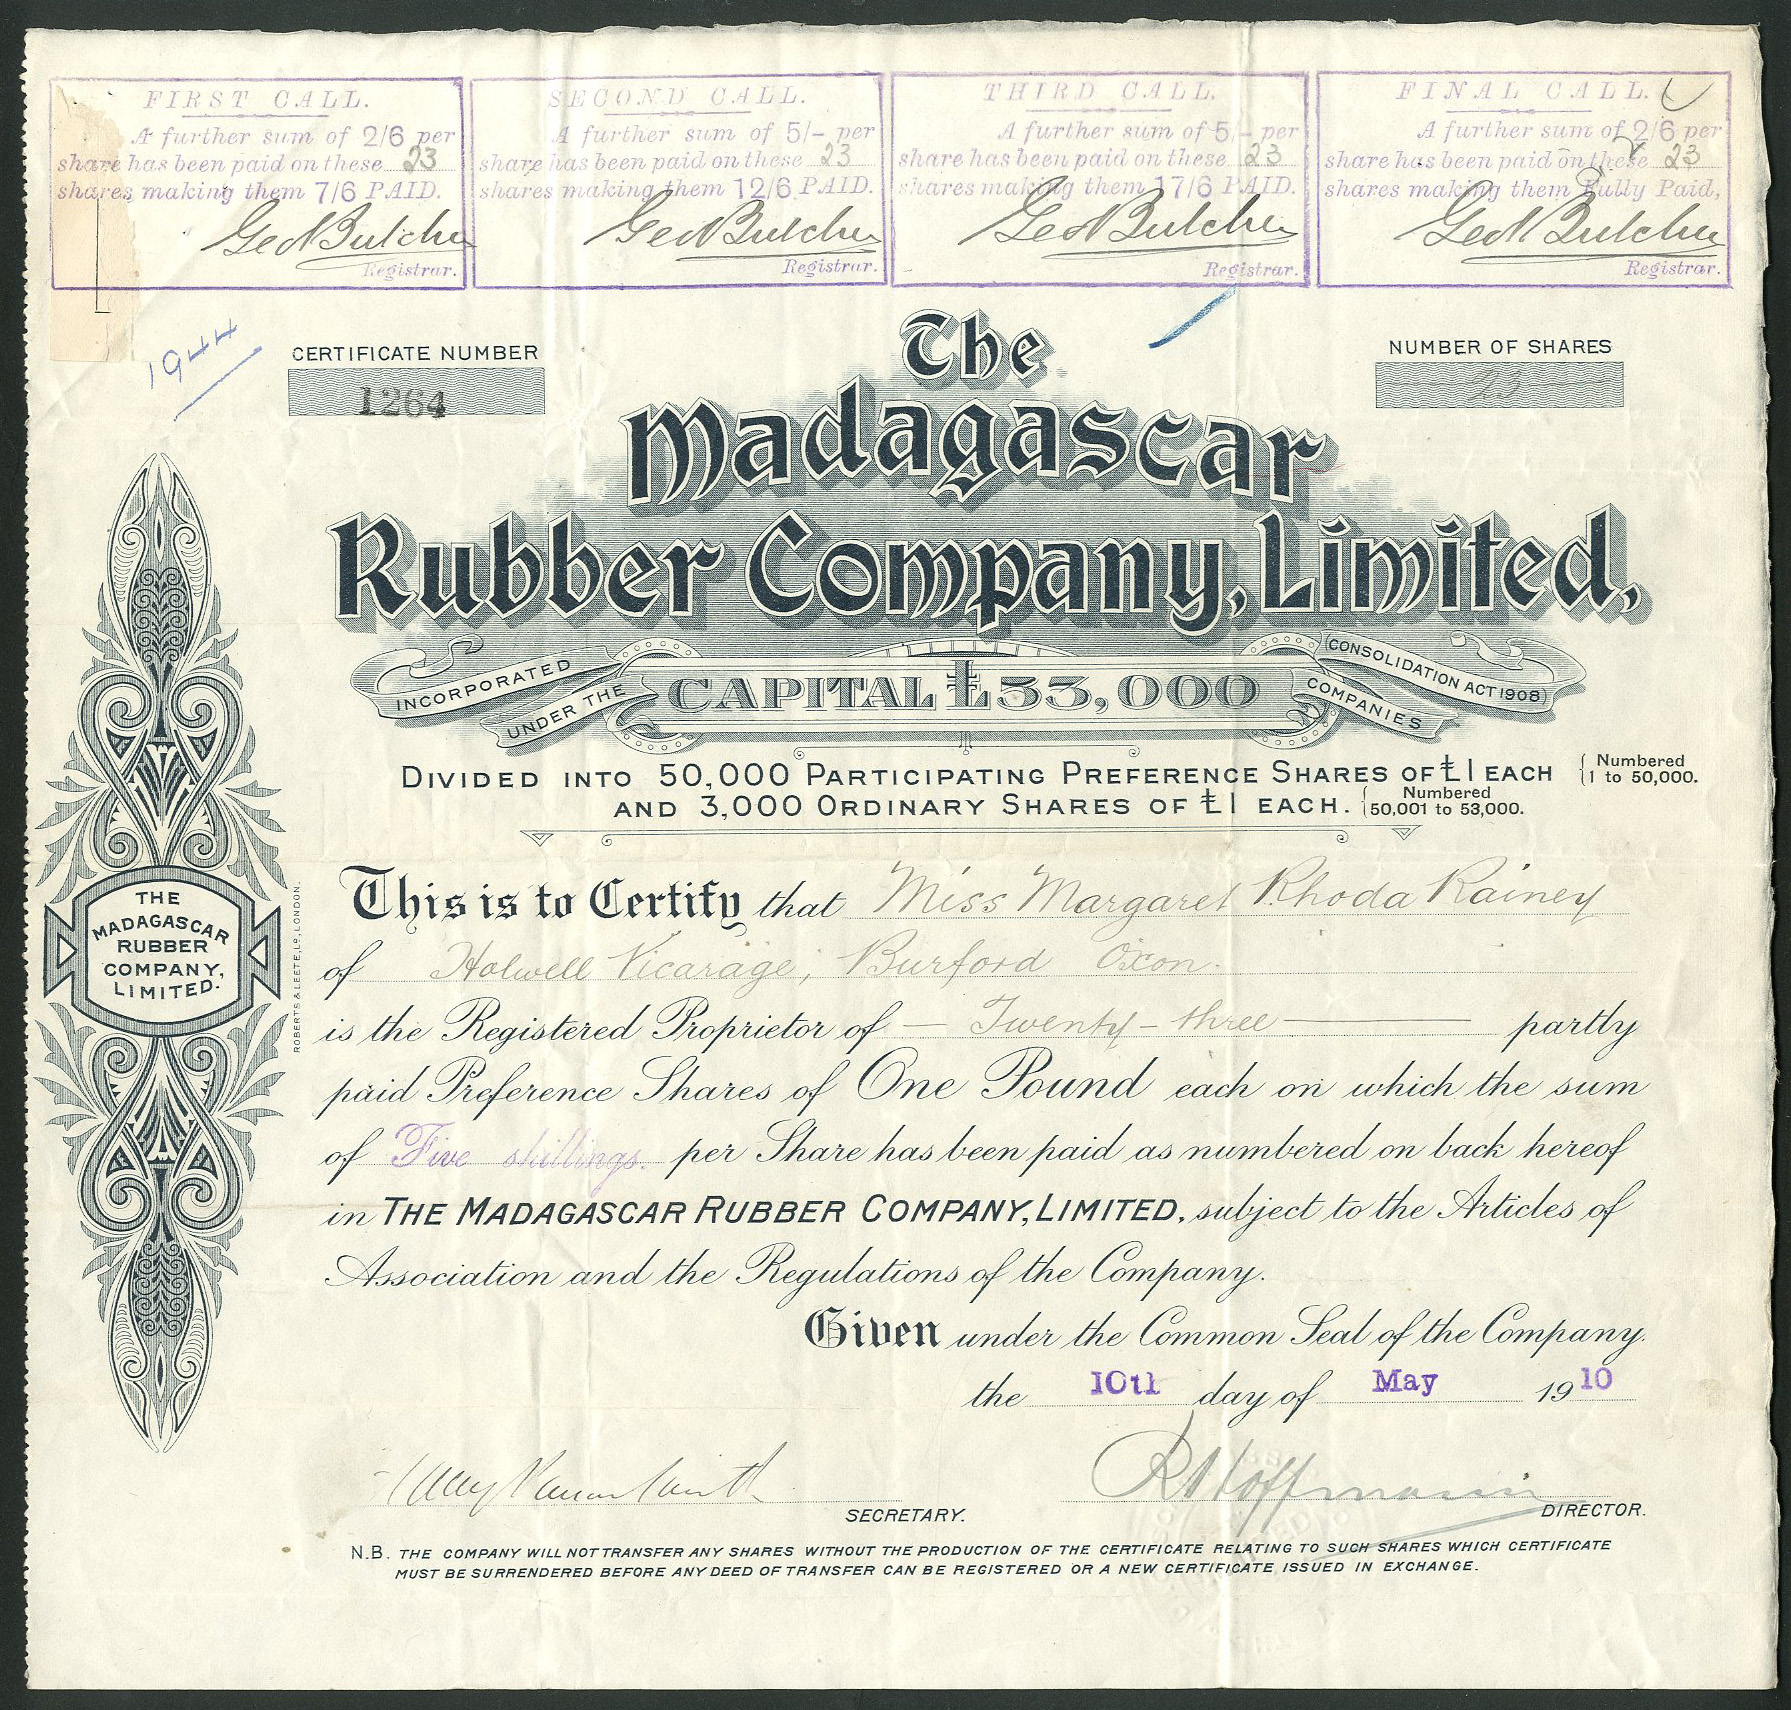 FIRST CALL.
A further sum of 2/6 per
share has been paid on these 23
shares making them 7/6 PAID.
Geo Butcher
Registrar.
SECOND CALL.
A further sum of 5/- per
share has been paid on these 23
shares making them 12/6 PAID.
Geo Butcher
Registrar.
THIRD CALL.
A further sum of 5/- per
share has been paid on these 23
shares making them 17/6 PAID.
Geo Butcher
Registrar.
FINAL CALL.
A further sum of 2/6 per
share has been paid on these 23
shares making them Fully Paid,
Geo Butcher
Registrar.
1944
CERTIFICATE NUMBER
1264
NUMBER OF SHARES
23
The
Madagascar
Rubber Company, Limited,
INCORPORATED UNDER THE COMPANIES CONSOLIDATION ACT 1908
CAPITAL £53,000
DIVIDED INTO 50,000 PARTICIPATING PREFERENCE SHARES OF £1 EACH { Numbered 1 to 50,000.
AND 3,000 ORDINARY SHARES OF £1 EACH. { Numbered 50,001 to 53,000.
THE
MADAGASCAR
RUBBER
COMPANY,
LIMITED.
ROBERTS & LEETE, LD, LONDON.
This is to Certify that Miss Margaret Rhoda Rainey
of Holwell Vicarage, Burford Oxon.
is the Registered Proprietor of — Twenty-three — partly
paid Preference Shares of One Pound each on which the sum
of Five shillings. per Share has been paid as numbered on back hereof
in THE MADAGASCAR RUBBER COMPANY, LIMITED, subject to the Articles of
Association and the Regulations of the Company.
Given under the Common Seal of the Company.
the 10th day of May 1910
SECRETARY.
Hoffmann
DIRECTOR.
N.B. THE COMPANY WILL NOT TRANSFER ANY SHARES WITHOUT THE PRODUCTION OF THE CERTIFICATE RELATING TO SUCH SHARES WHICH CERTIFICATE
MUST BE SURRENDERED BEFORE ANY DEED OF TRANSFER CAN BE REGISTERED OR A NEW CERTIFICATE ISSUED IN EXCHANGE.